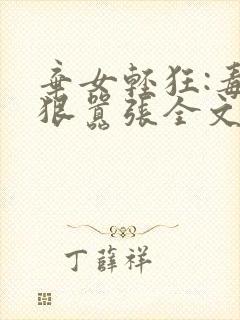 弃女轻狂:毒
狠嚣张全文
丁薛祥